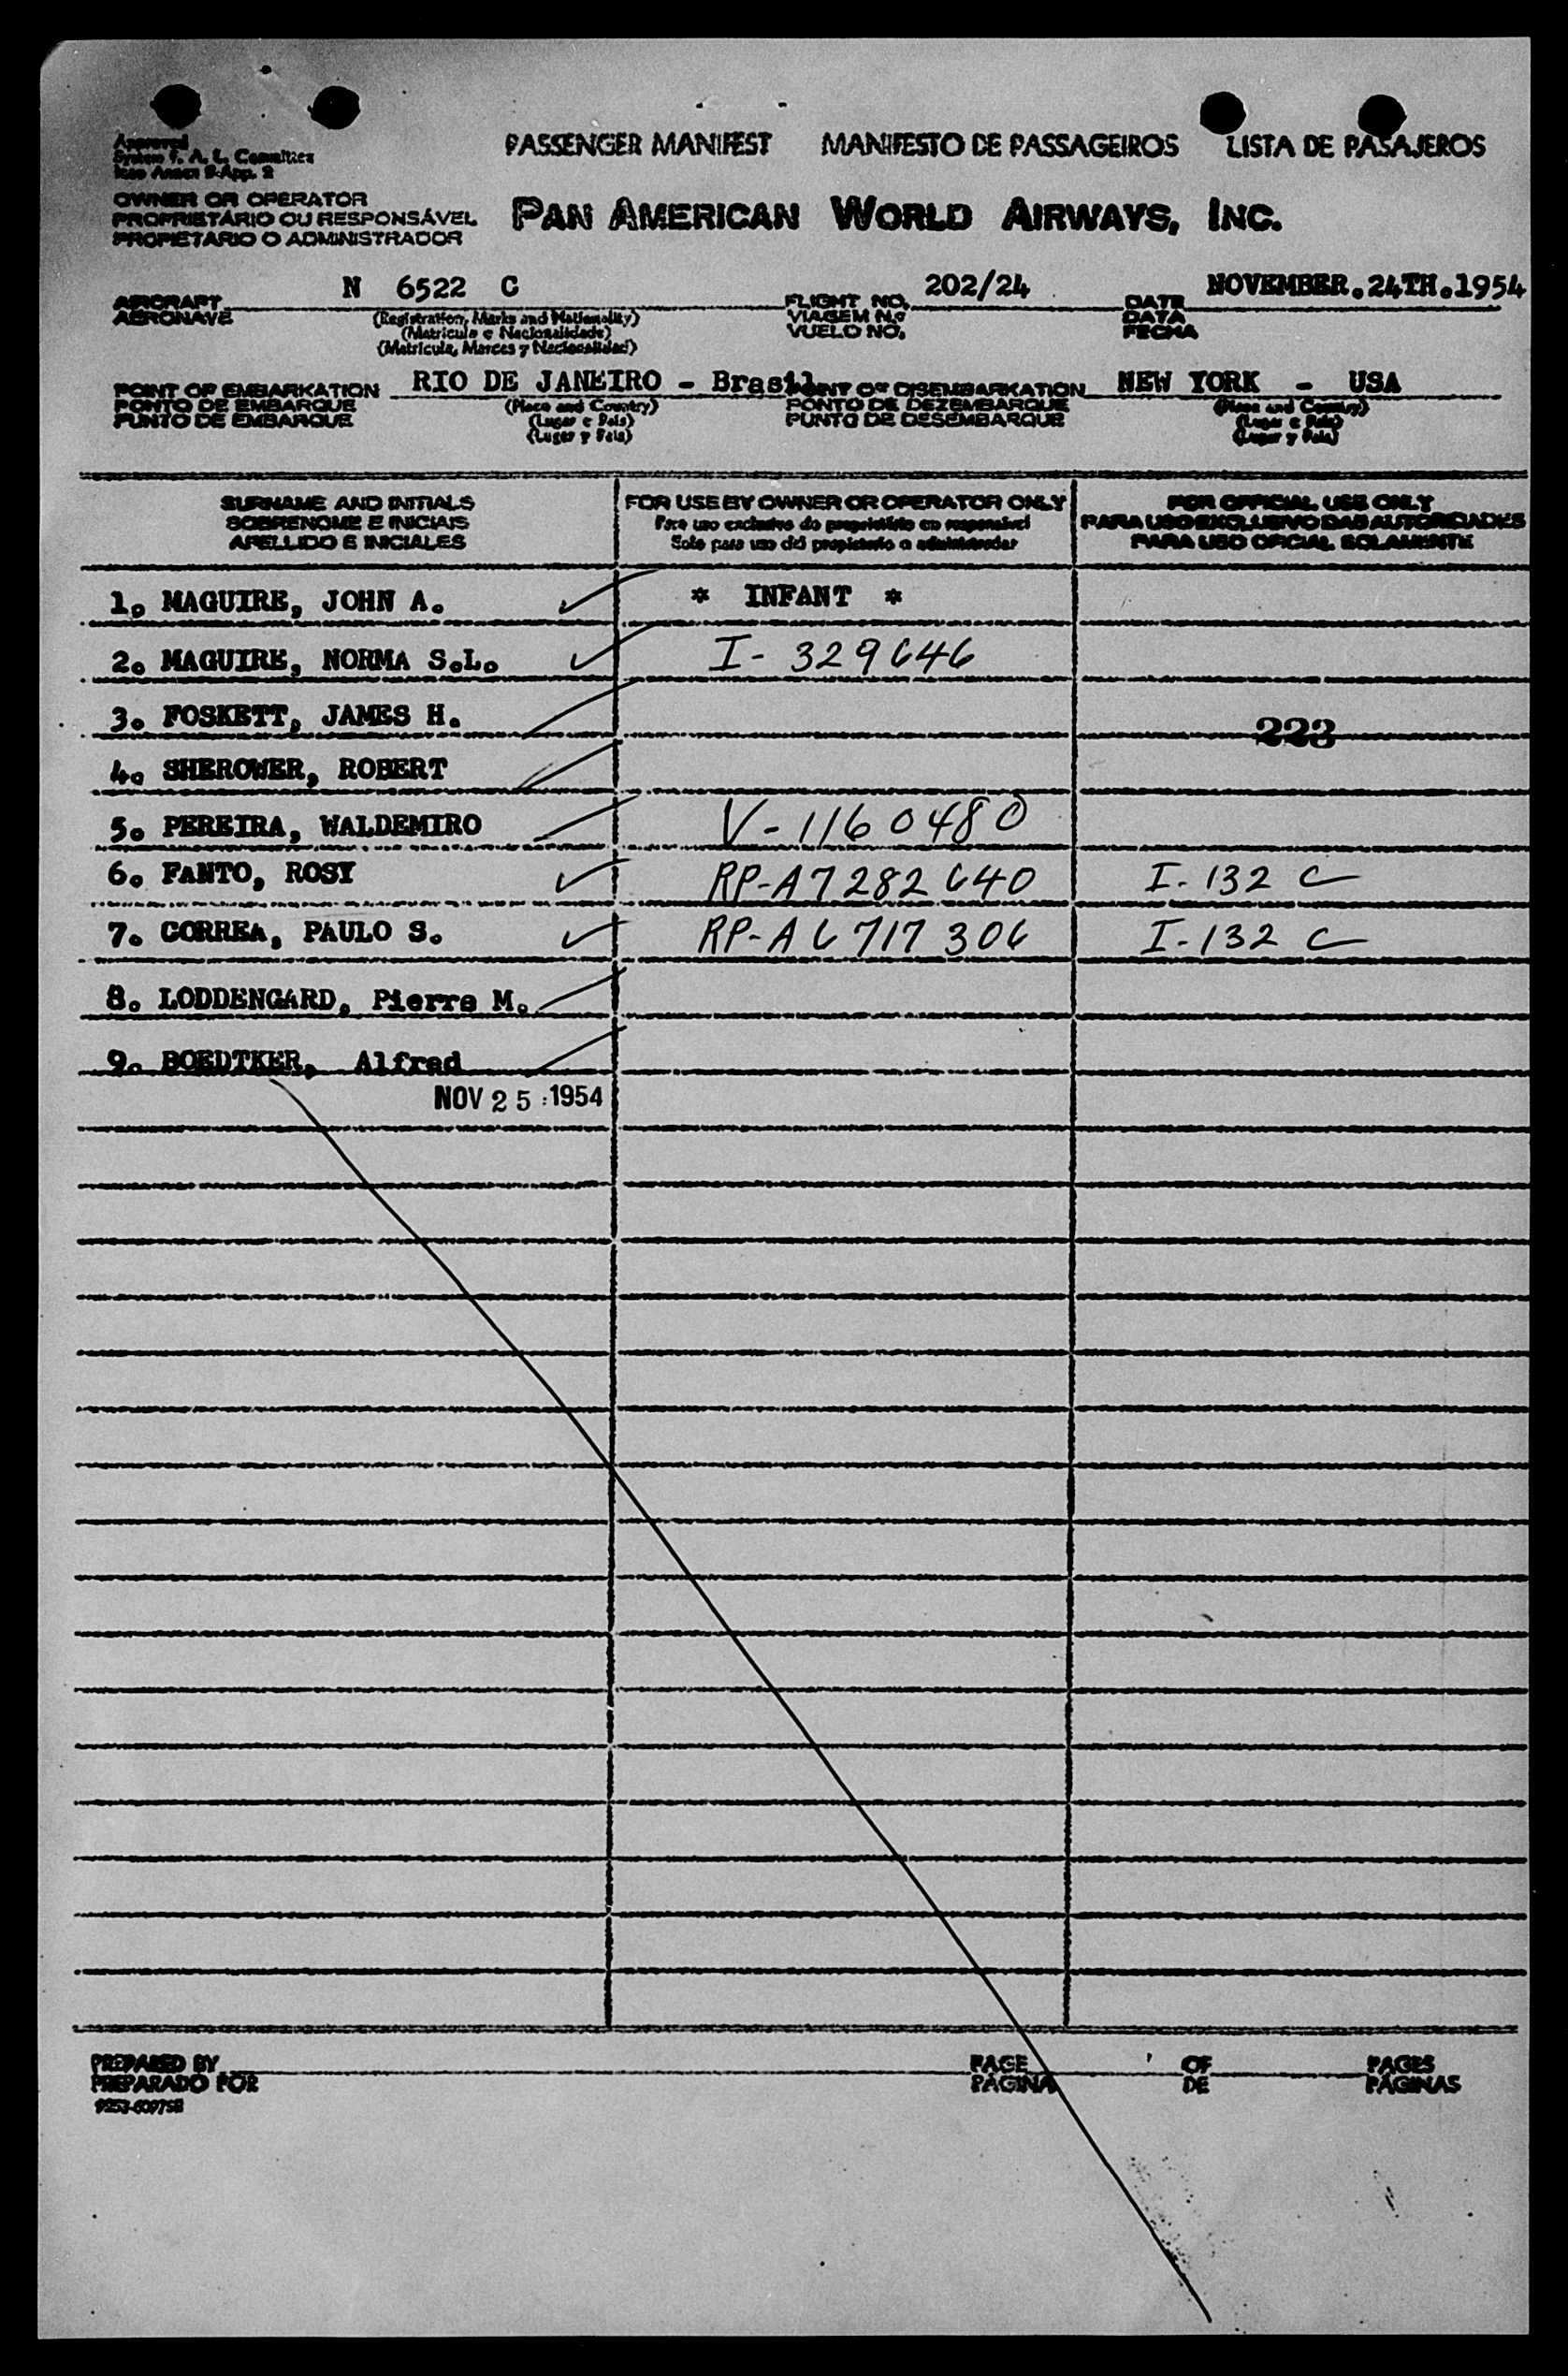 PASSENGER MANIFEST MANIFESTO DE PASSAGEIROS LISTA DE PASAJEROS
Approved
System F. A. L. Committee
Icao Annex 9-App. 2
OWNER OR OPERATOR
PROPRIETÁRIO OU RESPONSÁVEL
PROPIETARIO O ADMINISTRADOR
PAN AMERICAN WORLD AIRWAYS, INC.
AIRCRAFT N 6522 C FLIGHT NO. 202/24 DATE NOVEMBER.24TH.1954
AERONAVE (Registration, Marks and Nationality) VIAGEM N.º DATA
(Matricula e Nacionalidade) VUELO NO. FECHA
(Matricula, Marcas y Nacionalidad)
POINT OF EMBARKATION RIO DE JANEIRO - Brasil POINT OF DISEMBARKATION NEW YORK - USA
PONTO DE EMBARQUE (Place and Country) PONTO DE DEZEMBARQUE (Place and Country)
PUNTO DE EMBARQUE (Lugar e País) PUNTO DE DESEMBARQUE (Lugar e País)
(Lugar y País) (Lugar y País)
SURNAME AND INITIALS FOR USE BY OWNER OR OPERATOR ONLY FOR OFFICIAL USE ONLY
SOBRENOME E INICIAIS Para uso exclusivo do proprietário ou responsável PARA USO EXCLUSIVO DAS AUTORIDADES
APELLIDO E INICIALES Solo para uso del propietario o administrador PARA USO OFICIAL SOLAMENTE
1. MAGUIRE, JOHN A. * INFANT *
2. MAGUIRE, NORMA S.L. I- 329646
3. FOSKETT, JAMES H. 223
4. SHEROWER, ROBERT
5. PEREIRA, WALDEMIRO V-1160480
6. FANTO, ROSY RP-A7282640 I-132 C
7. CORREA, PAULO S. RP-A6717306 I-132 C
8. LODDENGARD, Pierre M.
9. BOEDTKER, Alfred
NOV 25 1954
PREPARED BY PAGE OF PAGES
PREPARADO POR PÁGINA DE PÁGINAS